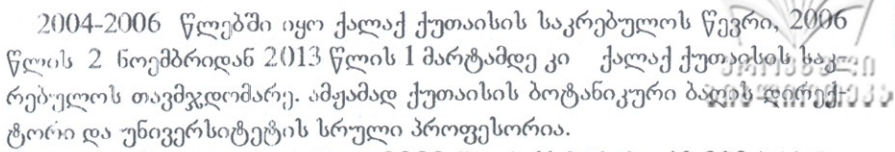 2004-2006 წლებში იყო ქალაქ ქუთაისის საკრებულოს წევრი, 2006
წლის 2 ნოემბრიდან 2013 წლის 1 მარტამდე კი ქალაქ ქუთაისის საკ-
რებულოს თავმჯდომარე. ამჟამად ქუთაისის ბოტანიკური ბაღის დირექ-
ტორი და უნივერსიტეტის სრული პროფესორია.